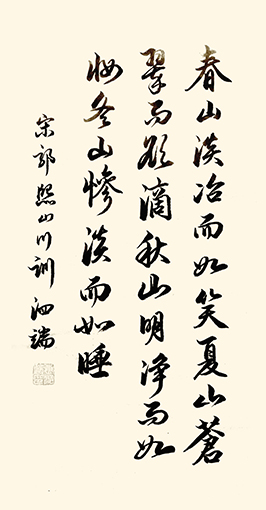 春山淡冶而如笑夏山蒼
翠而欲滴秋山明淨而如
妝冬山惨淡而如睡
宋郭熙山川訓 泗端